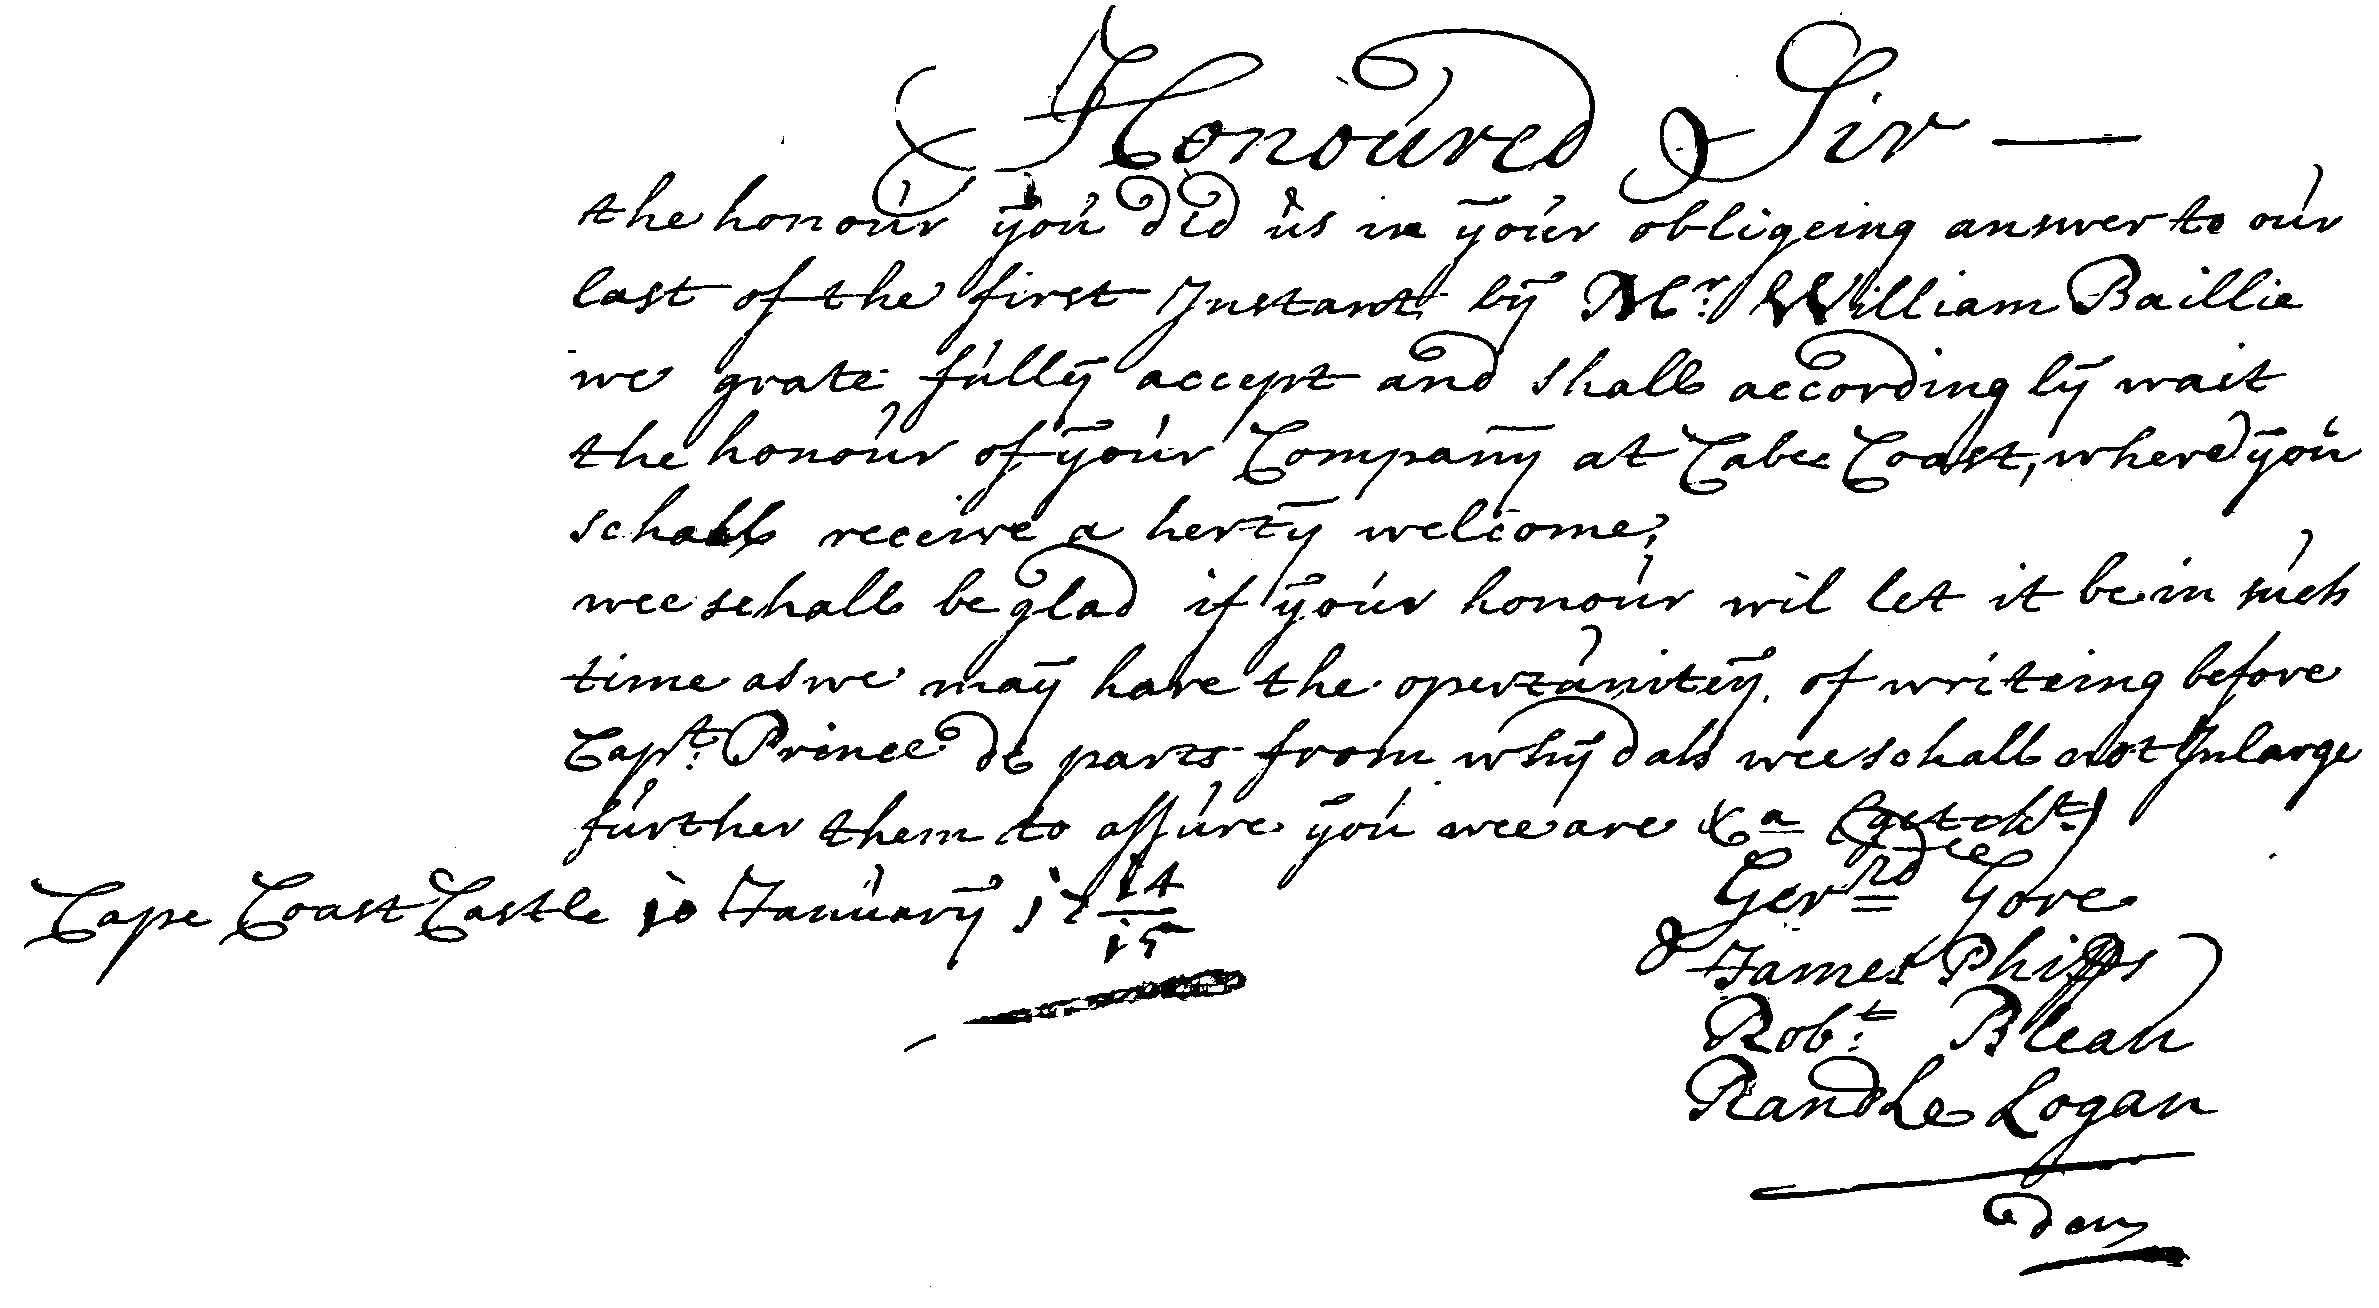 Honoured Sir —
the honour you did us in your obligeing answer to our
last of the first Instant by Mr. William Baillie
we grate fully accept and shall accordingly wait
the honour of your Company at Cabee Coast, where you
schall receive a herty welcome;
wee schall be glad if your honour wil let it be in such
time as we may have the opertunitey of writeing before
Capt. Prince de parts from whydah wee schall not Inlarge
further them to assure you wee are &a (getekt.)
Gerrd Gore
Cape Coast Castle 10 January 17 14/15
& James Phipps
Robt: Blean
Randle Logan